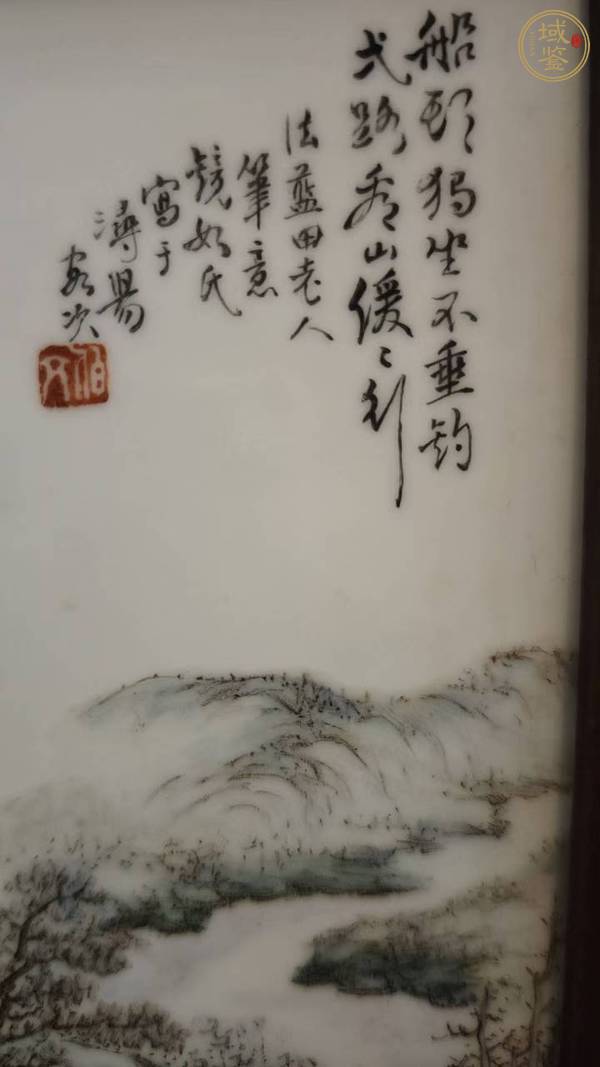 船頭獨坐不垂釣
弌路看山緩〻行
法藍田老人
筆意
鏡如氏
寫于
潯陽
客次
伯文
域鉴